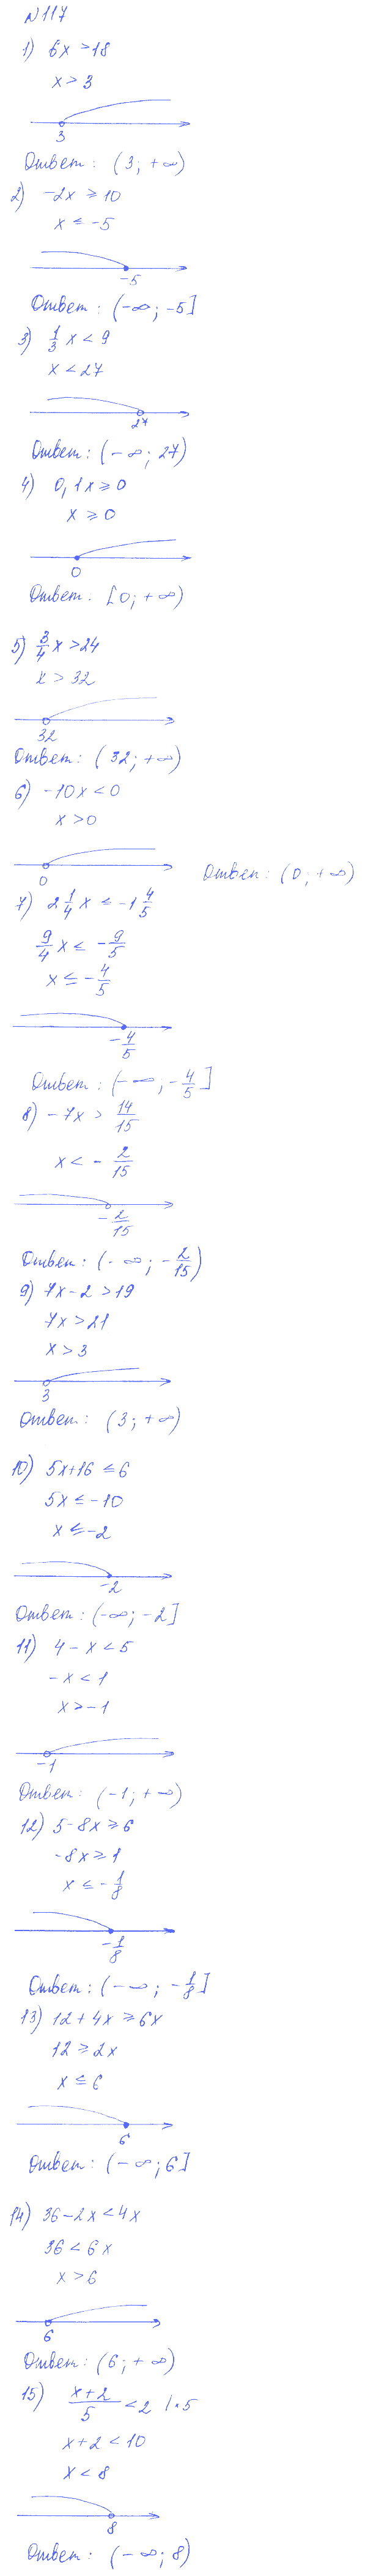 №117
1) 6x > 18
x > 3
3
Ответ: (3; +∞)
2) -2x ≥ 10
x ≤ -5
-5
Ответ: (-∞; -5]
3) 1/3 x < 9
x < 27
27
Ответ: (-∞; 27)
4) 0,1x ≥ 0
x ≥ 0
0
Ответ. [0; +∞)
5) 3/4 x > 24
x > 32
32
Ответ: (32; +∞)
6) -10x < 0
x > 0
0
Ответ: (0; +∞)
7) 2 1/4 x ≤ -1 4/5
9/4 x ≤ -9/5
x ≤ -4/5
-4/5
Ответ: (-∞; -4/5]
8) -7x > 14/15
x < -2/15
-2/15
Ответ: (-∞; -2/15)
9) 7x - 2 > 19
7x > 21
x > 3
3
Ответ: (3; +∞)
10) 5x + 16 ≤ 6
5x ≤ -10
x ≤ -2
-2
Ответ: (-∞; -2]
11) 4 - x < 5
-x < 1
x > -1
-1
Ответ: (-1; +∞)
12) 5 - 8x ≥ 6
-8x ≥ 1
x ≤ -1/8
-1/8
Ответ: (-∞; -1/8]
13) 12 + 4x ≥ 6x
12 ≥ 2x
x ≤ 6
6
Ответ: (-∞; 6]
14) 36 - 2x < 4x
36 < 6x
x > 6
6
Ответ: (6; +∞)
15) (x+2)/5 < 2 |·5
x + 2 < 10
x < 8
8
Ответ: (-∞; 8)